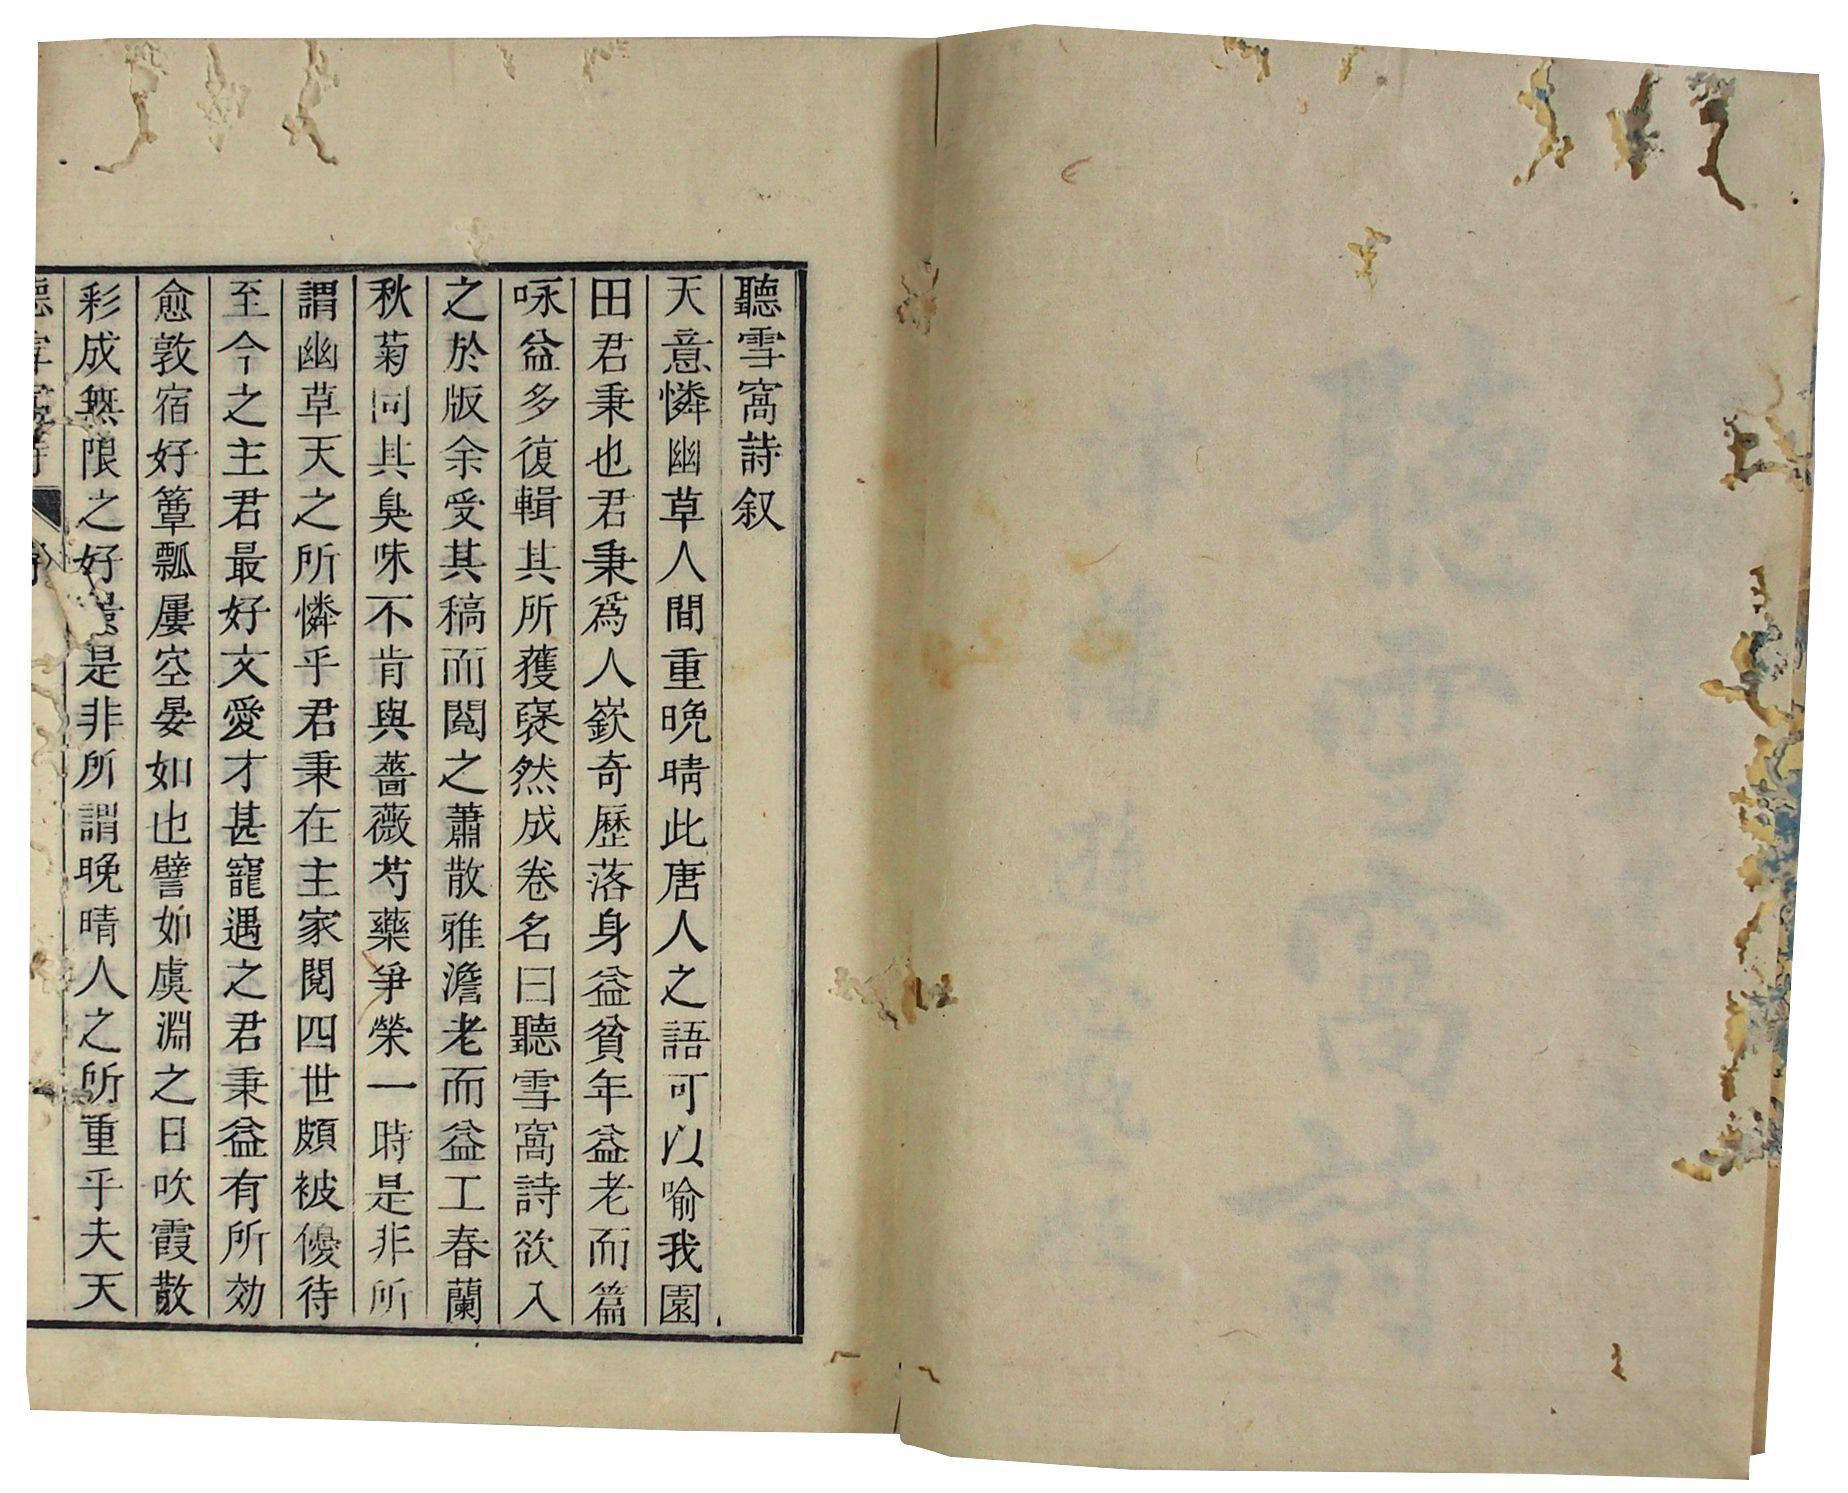 聽雪窩詩叙
天意憐幽草人間重晩晴此唐人之語可以喻我園
田君秉也君秉爲人嶔奇歷落身益貧年益老而篇
咏益多復輯其所獲裒然成卷名曰聽雪窩詩欲入
之於版余受其稿而閲之蕭散雅澹老而益工春蘭
秋菊同其臭味不肯與薔薇芍藥爭榮一時是非所
謂幽草天之所憐乎君秉在主家閱四世頗被優待
至今之主君最好文愛才甚寵遇之君秉益有所効
愈敦宿好簞瓢屢空晏如也譬如虞淵之日吹霞散
彩成無限之好是非所謂晩晴人之所重乎夫天
聽雪窩詩 序